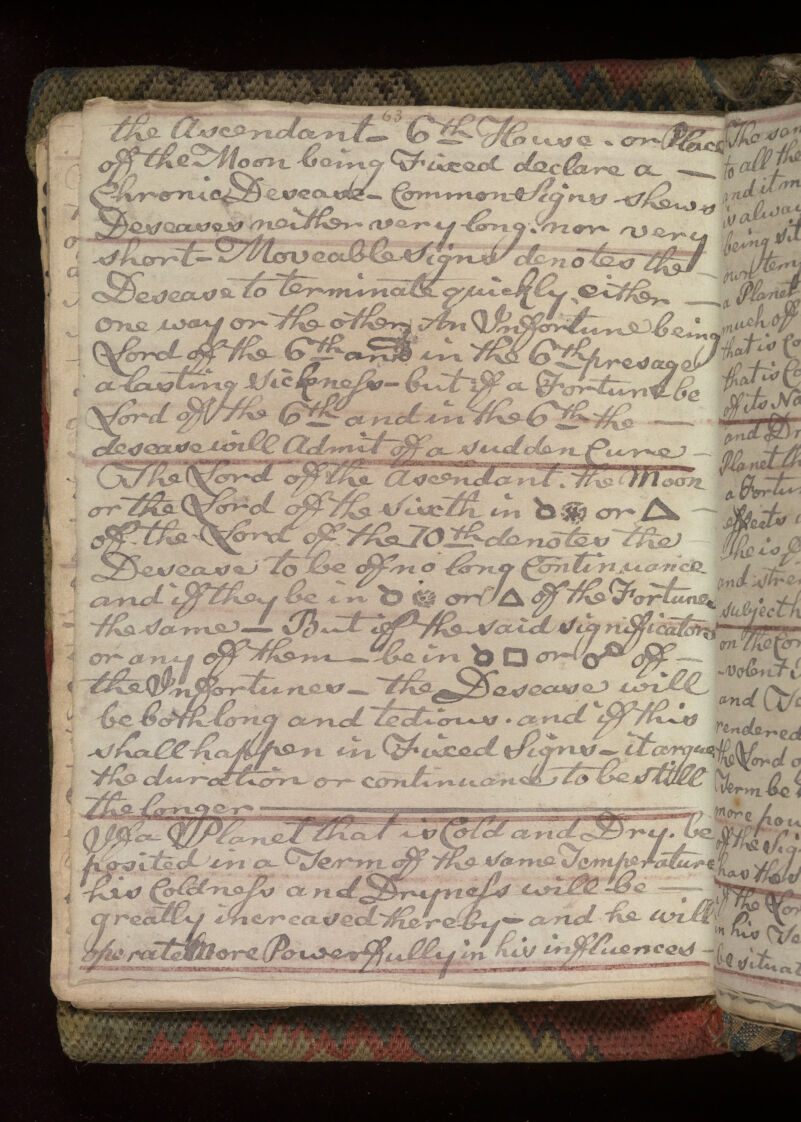 63
the Ascendant - 6th House . or Place
off the Moon being Fixed declare a —
Chronic Desease - Common Signs shews
Deseases neither very long . nor very
short - Moveable Signs denotes the
Desease to terminate quickly either —
one way or the other An Infortune being
Lord off the 6th and in the 6th presages
a lasting Sickness - but iff a Fortune be
Lord off the 6th and in the 6th the —
desease will Admit off a sudden Cure —
The Lord off the Ascendant . the Moon
or the Lord off the sixth in ☌ ✶ or △ —
off the Lord off the 10th denotes the
Desease to be off no long Continuance
and iff they be in ☌ ✶ or △ off the Fortunes
the same — But iff the said significators
or any off them — be in ☌ □ or ☍ off —
the Infortunes - the Desease will
be both long and tedious . and iff this
shall happen in Fixed Signs - it argues
the duration or continuance to be still
the longer
Iff a Planet that is Cold and Dry . be
posited in a Term off the same Temperature
his Coldness and Dryness will be —
greatly increased thereby - and he will
operate More Powerffully in his inffluences -
to all the
is alway
being sit
own tem
a Planet
much off
that is Co
that is Co
off its Na
and Dr
Planet th
a Fortun
effects
he is
and stre
subject
on the Cor
volent
and
rendered
the Lord o
Term be
more pow
off the Sig
has the
iff the Lor
in his Te
be situat